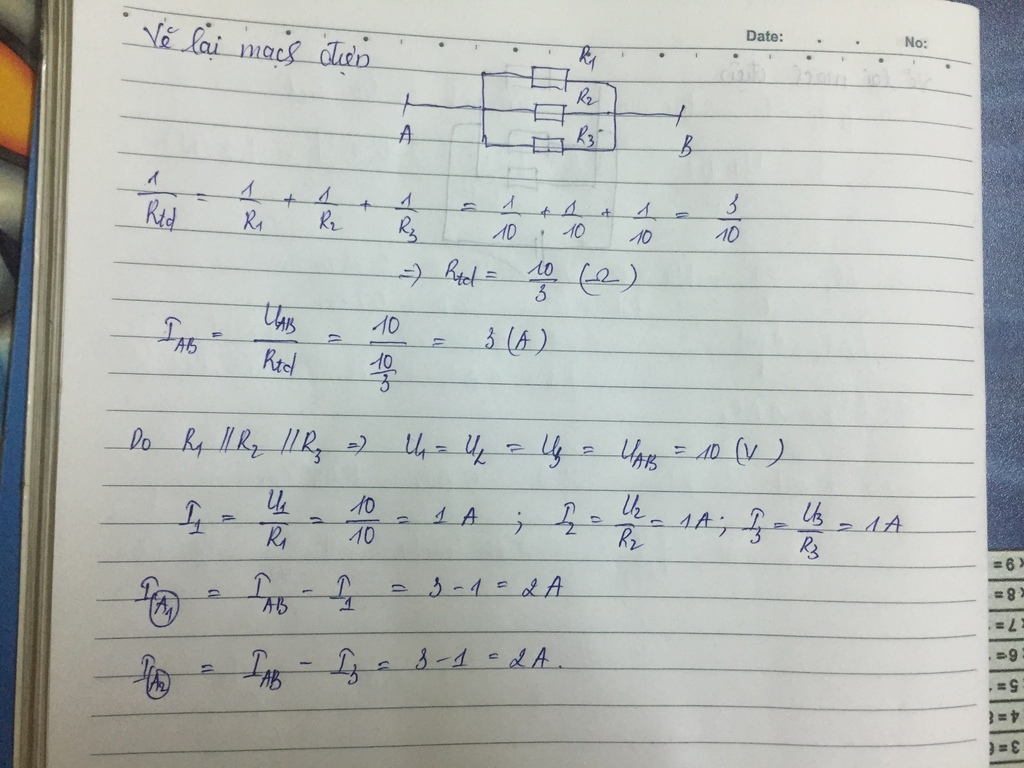 Date: No:
Vẽ lại mạch điện
R1
R2
R3
A B
1/Rtd = 1/R1 + 1/R2 + 1/R3 = 1/10 + 1/10 + 1/10 = 3/10
=> Rtd = 10/3 (Ω)
IAB = UAB/Rtd = 10/(10/3) = 3 (A)
Do R1 // R2 // R3 => U1 = U2 = U3 = UAB = 10 (V)
I1 = U1/R1 = 10/10 = 1 A ; I2 = U2/R2 = 1A ; I3 = U3/R3 = 1A
I(A1) = IAB - I1 = 3 - 1 = 2 A
I(A2) = IAB - I3 = 3 - 1 = 2A.